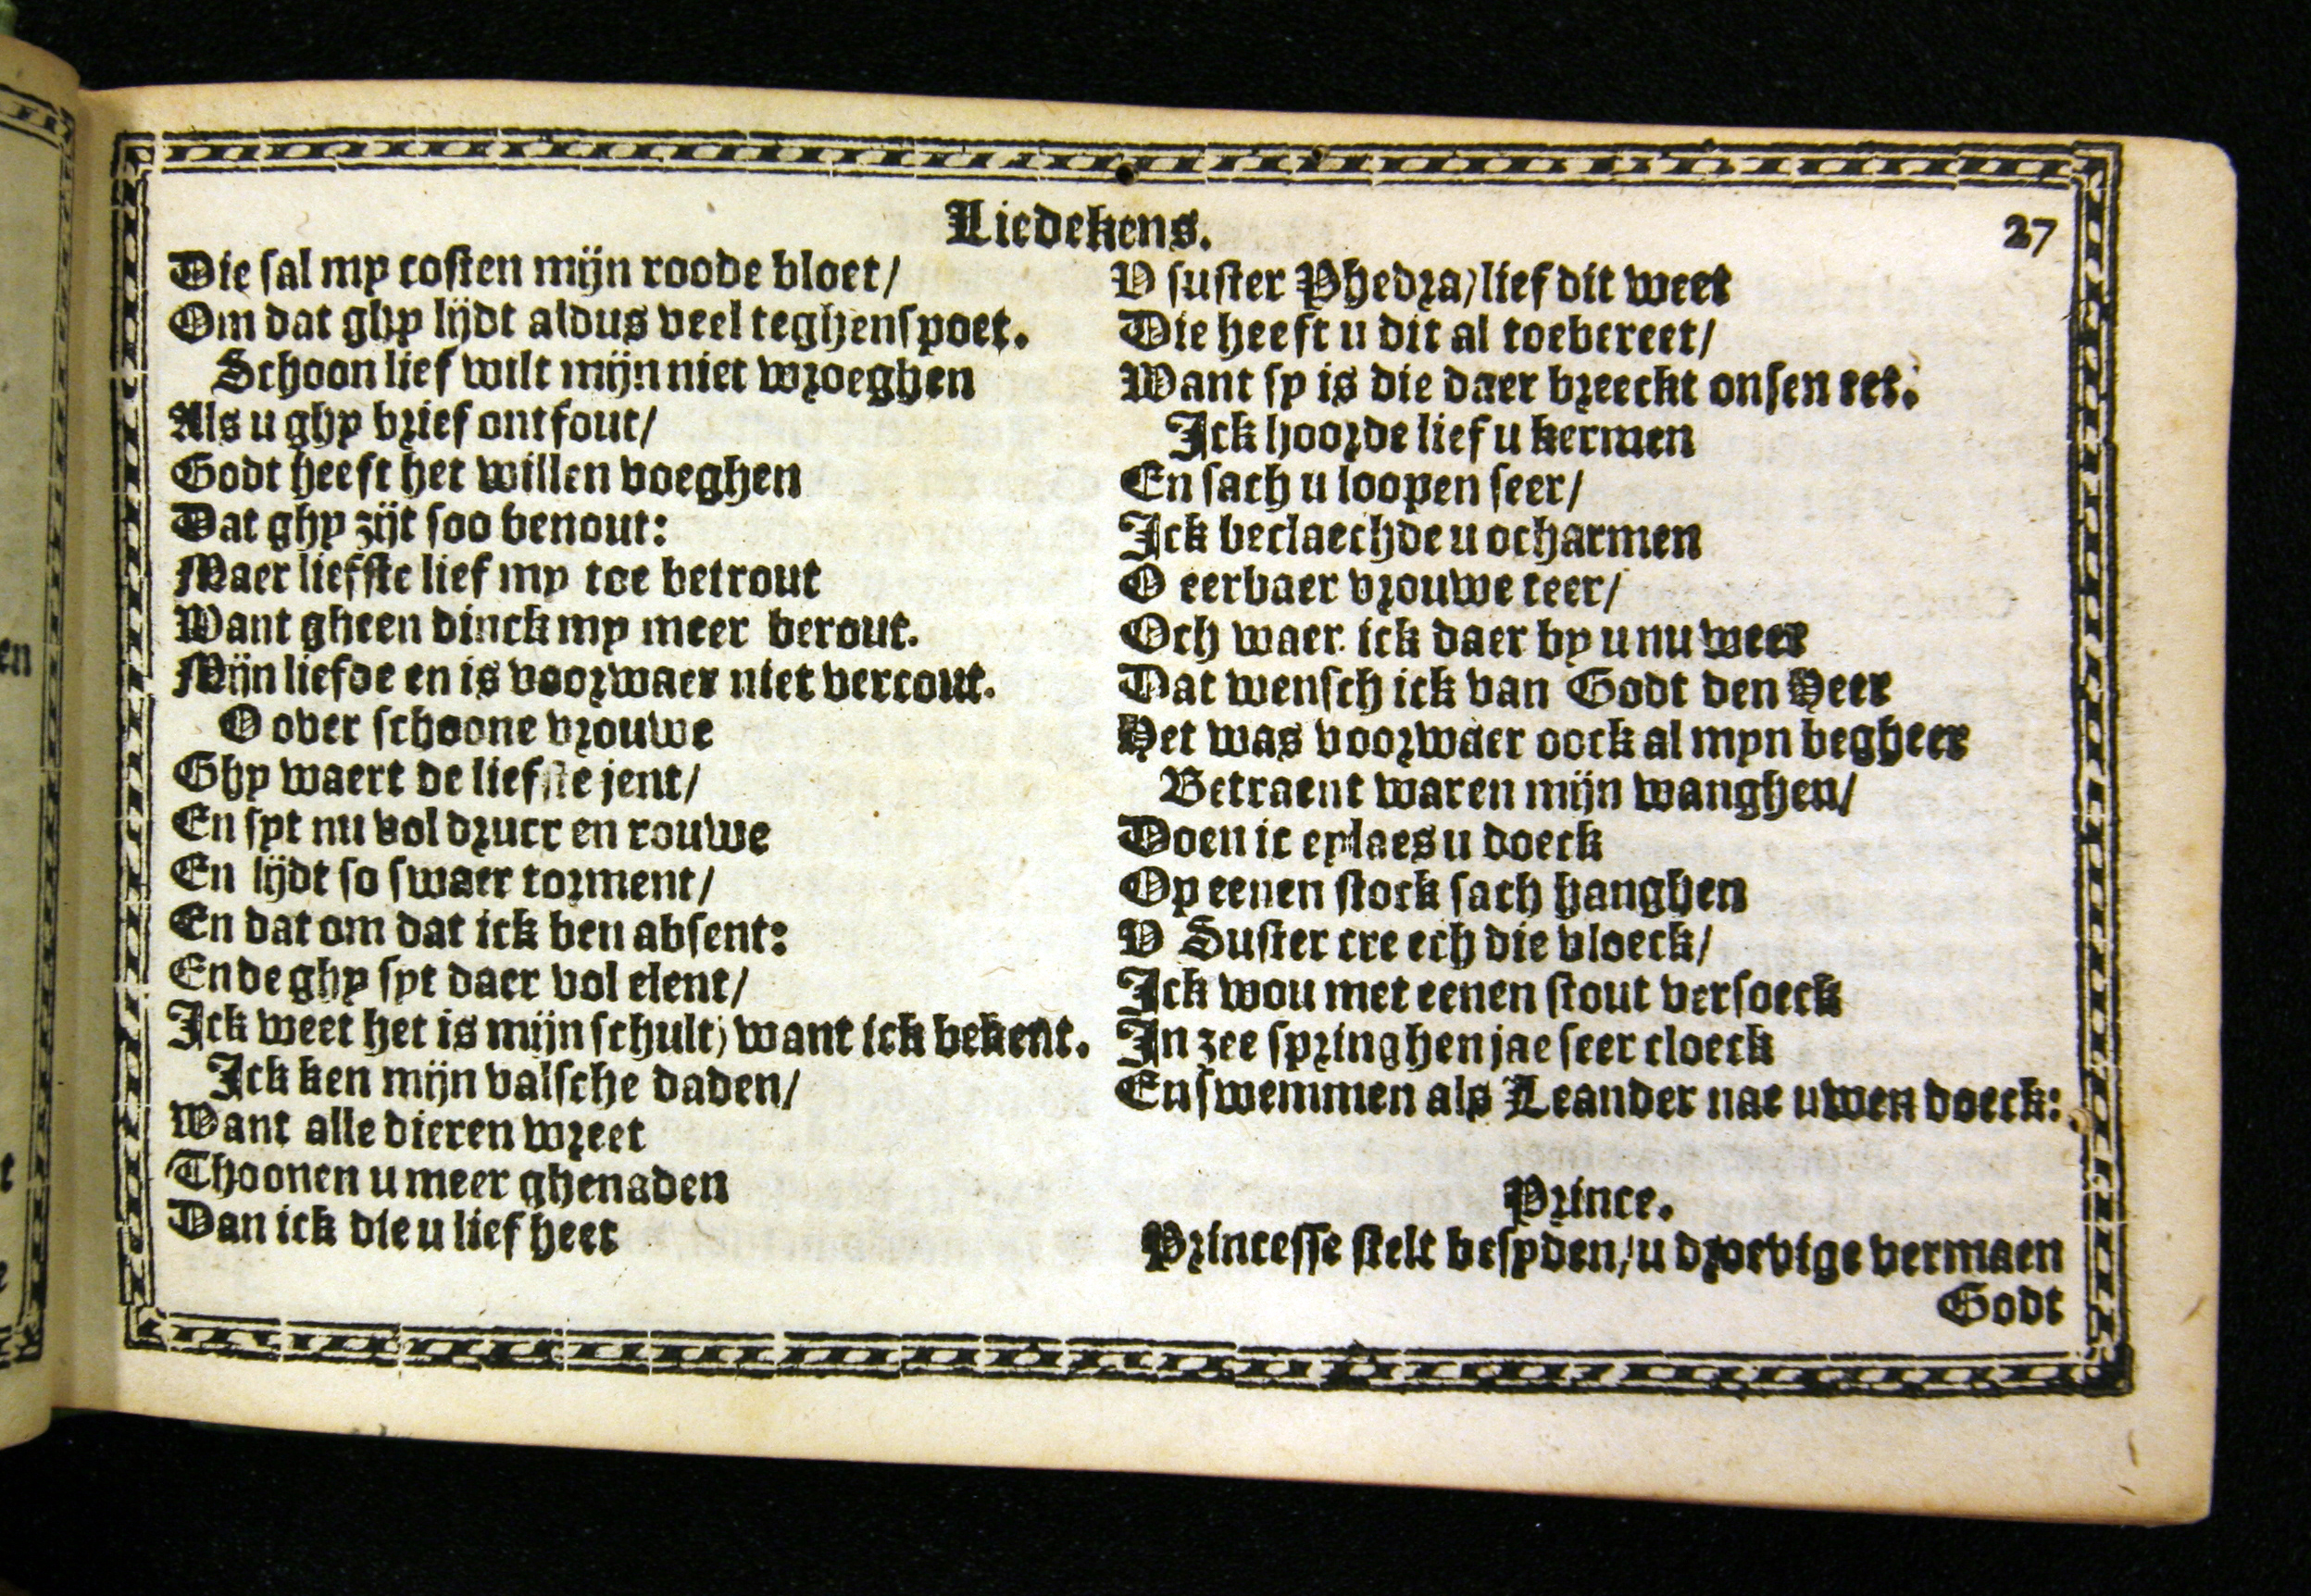 Liedekens.
27
Die sal my costen mijn roode bloet/
Om dat ghy lijdt aldus veel teghenspoet.
Schoon lief wilt mijn niet wroeghen
Als u ghy brief ontfout/
Godt heeft het willen voeghen
Dat ghy zijt soo benout:
Maer liefste lief my toe betrout
Want gheen dinck my meer berout.
Mijn liefde en is voorwaer niet vercout.
O over schoone vrouwe
Ghy waert de liefste jent/
En syt nu vol druct en rouwe
En lijdt so swaer torment/
En dat om dat ick ben absent:
Ende ghy syt daer vol elent/
Ick weet het is mijn schult) want ick bekent.
Ick ken mijn valsche daden/
Want alle dieren wreet
Thoonen u meer ghenaden
Dan ick die u lief heet
V suster Phedra/lief dit weet
Die heeft u dit al toebereet/
Want sy is die daer breeckt onsen eet.
Ick hoorde lief u kermen
En sach u loopen seer/
Ick beclaechde u ocharmen
O eerbaer vrouwe teer/
Och waer ick daer by u nu weer
Dat wensch ick van Godt den Heer
Het was voorwaer oock al myn begheer
Betraent waren mijn wanghen/
Doen ic eylaes u doeck
Op eenen stock sach hanghen
V Suster creech die vloeck/
Ick wou met eenen stout versoeck
In zee springhen jae seer cloeck
En swemmen als Leander nae uwen doeck:
Prince.
Princesse stelt besyden/u droevige vermaen
Godt